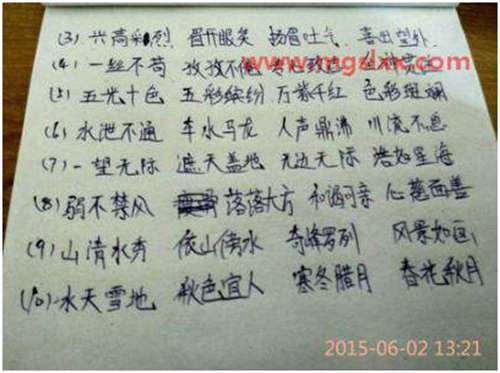 (3) 兴高彩烈 眉开眼笑 扬眉吐气 喜出望外
(4) 一丝不苟 孜孜不倦 专心致志
www.mgslxx.com
(5) 五光十色 五彩缤纷 万紫千红 色彩斑斓
(6) 水泄不通 车水马龙 人声鼎沸 川流不息
(7) 一望无际 遮天盖地 无边无际 浩如星海
(8) 弱不禁风 落落大方 和谒可亲 心慈面善
(9) 山清水秀 依山傍水 奇峰罗列 风景如画
(10) 水天雪地 秋色宜人 寒冬腊月 春花秋月
2015-06-02 13:21